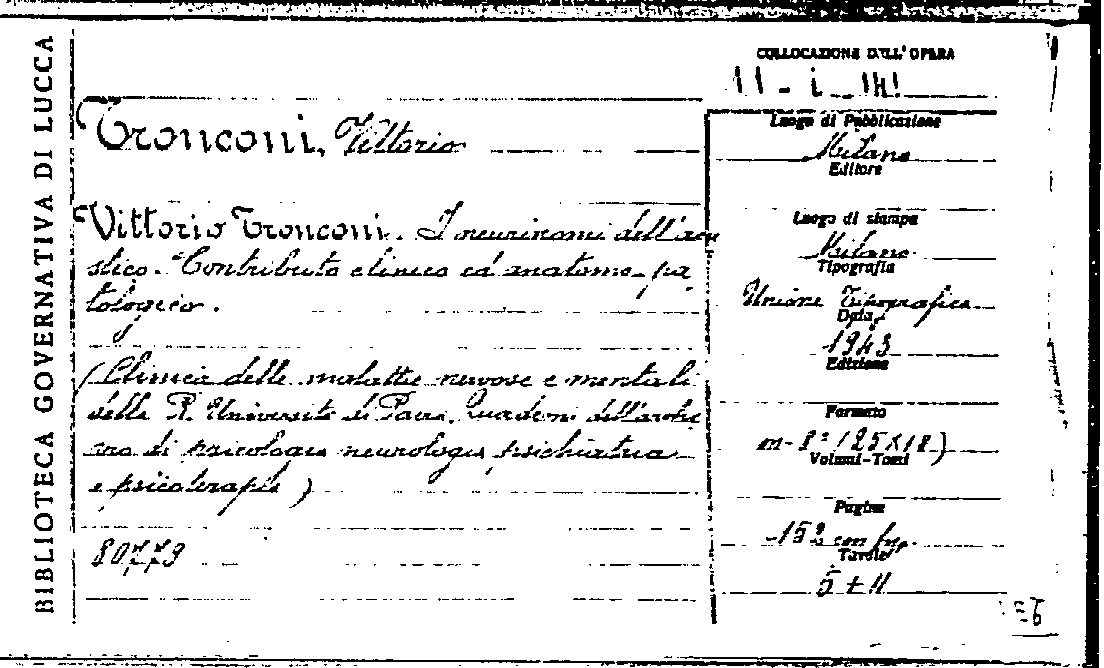 BIBLIOTECA GOVERNATIVA DI LUCCA
COLLOCAZIONE DELL'OPERA
11 - i - 141
Tronconi, Vittorio
Vittorio Tronconi. I neurinomi dell'acu
stico. Contributo clinico ed anatomo-pa
tologico.
(Clinica delle malattie nervose e mentali
della R. Università di Pavia. Quaderni dell'archi
vio di psicologia neurologia psichiatria
e psicoterapia)
80779
Luogo di Pubblicazione
Milano
Editore
Luogo di stampa
Milano
Tipografia
Unione Tipografica
Data
1943
Edizione
Formato
m-8° (25x18)
Volumi-Tomi
Pagine
152 con fig.
Tavole